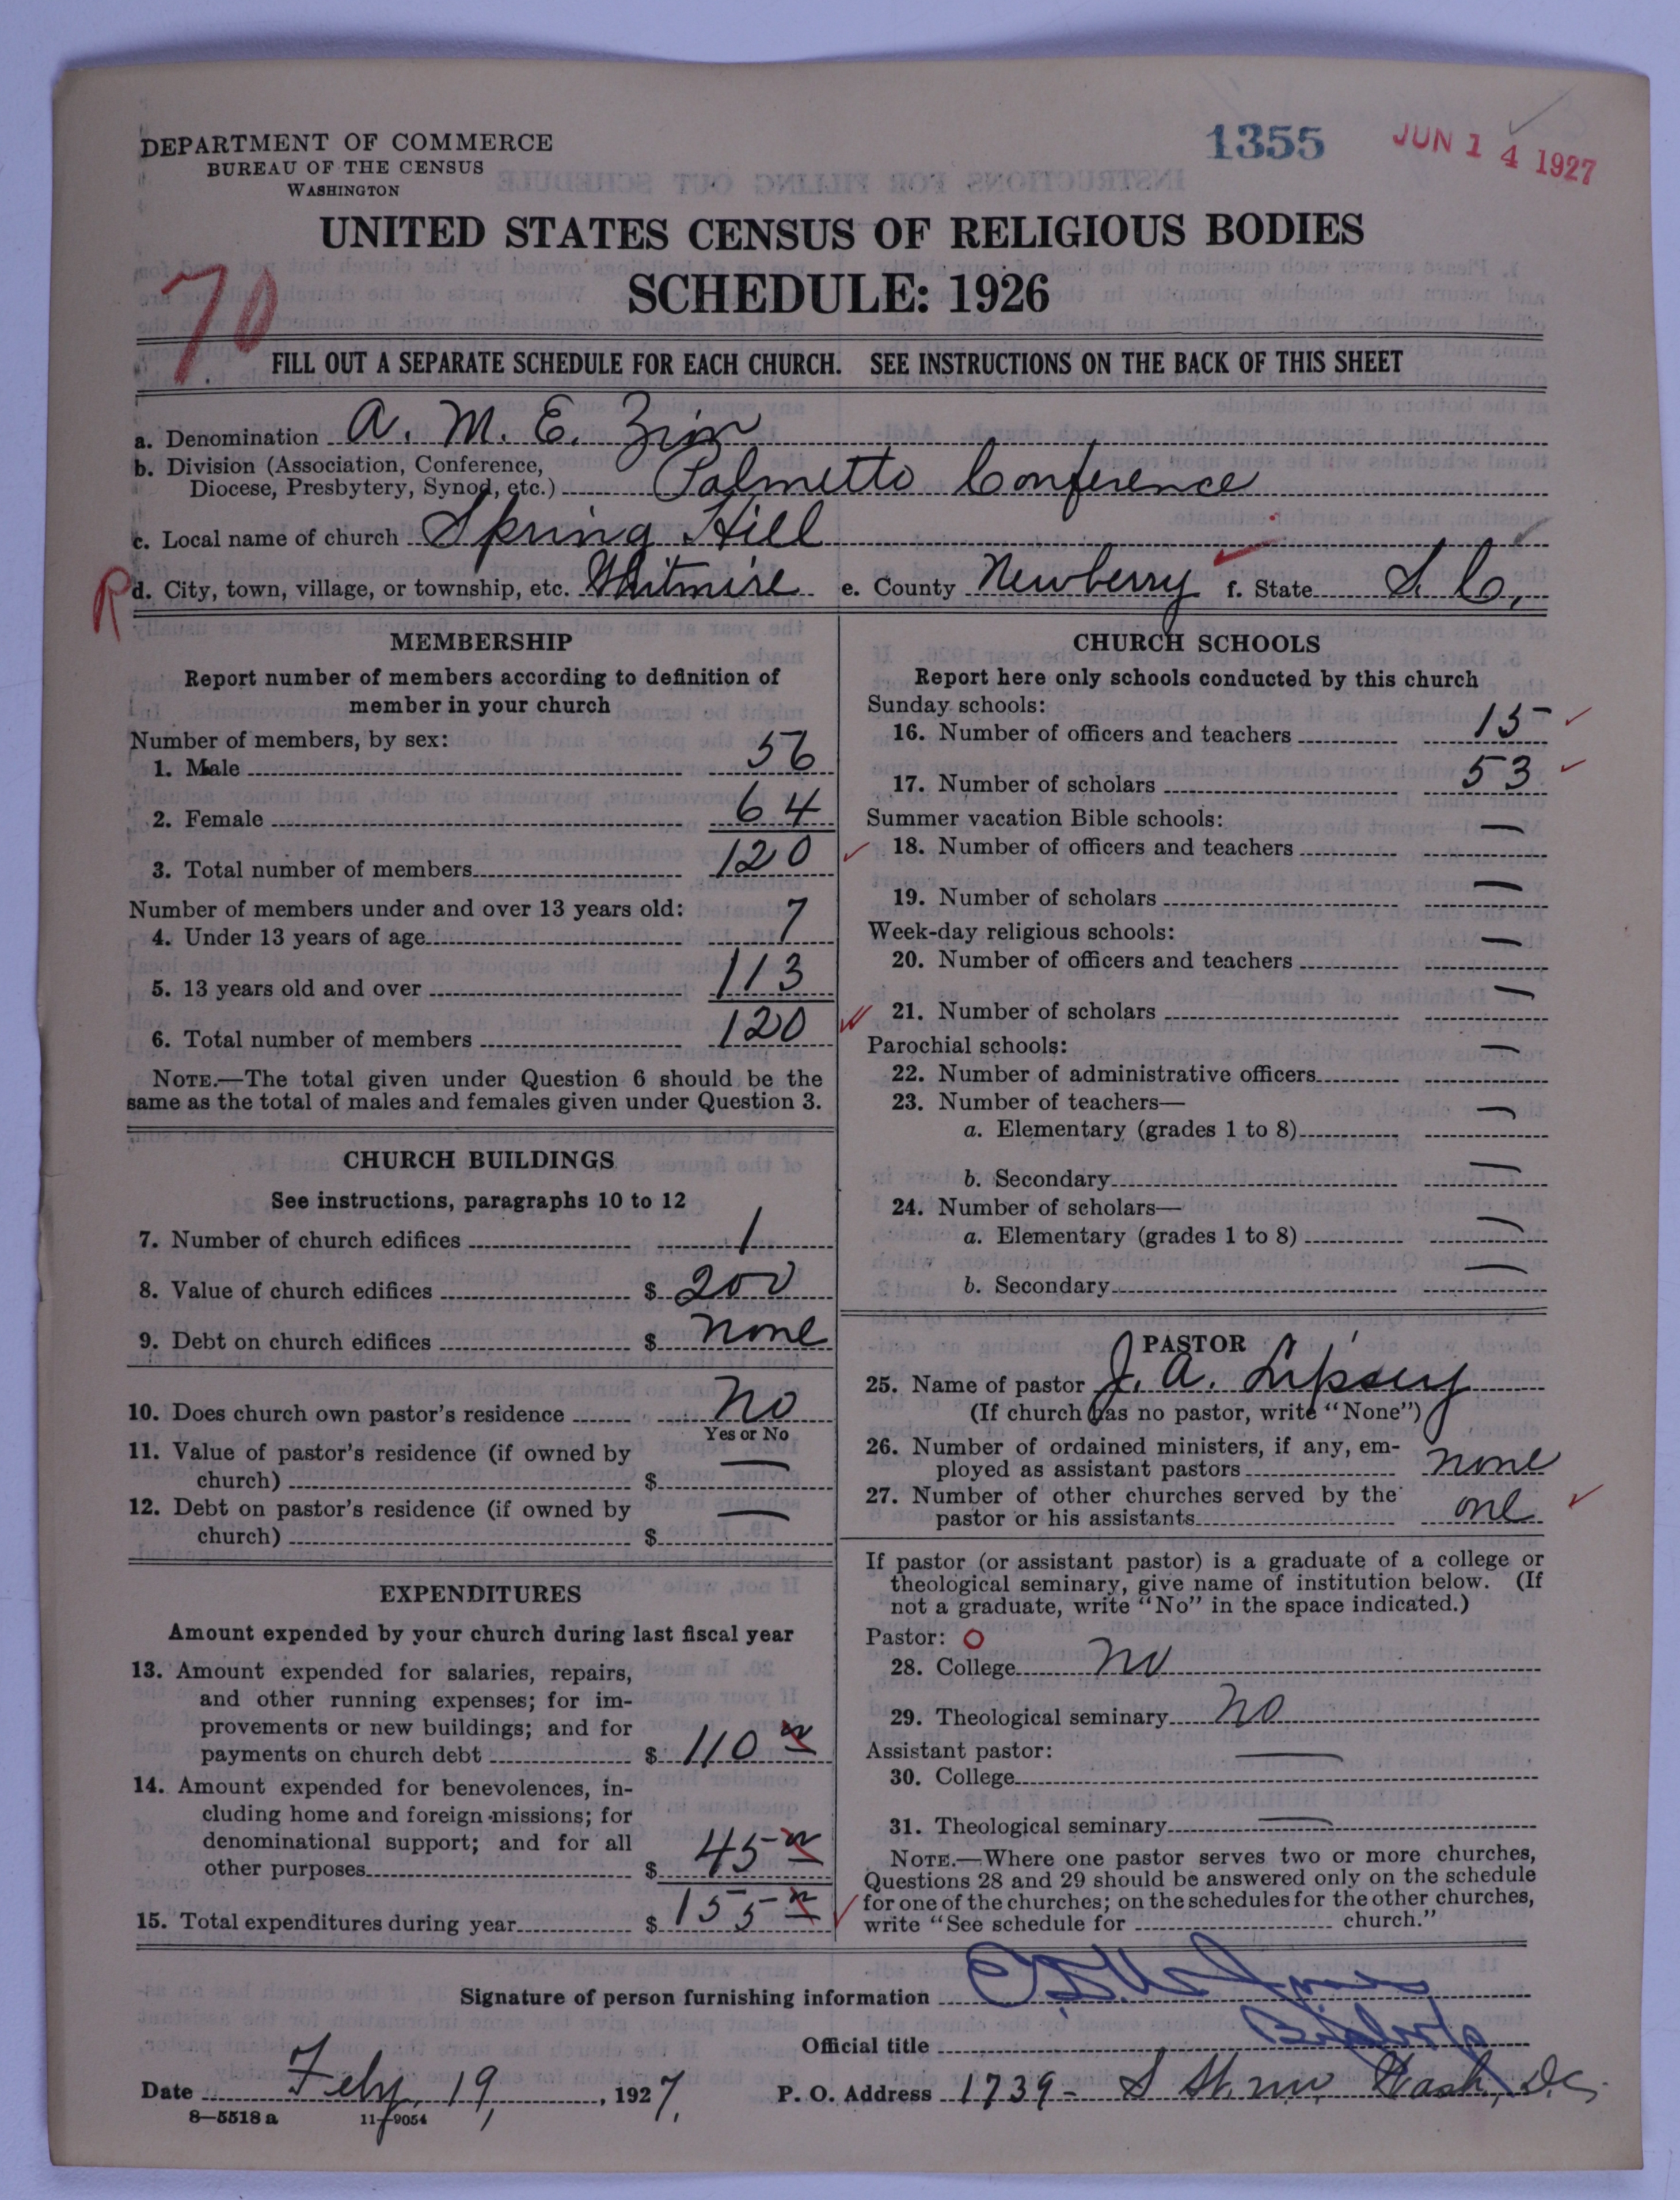 DEPARTMENT OF COMMERCE
BUREAU OF THE CENSUS
WASHINGTON
1355
JUN 14 1927
UNITED STATES CENSUS OF RELIGIOUS BODIES
SCHEDULE: 1926
70
FILL OUT A SEPARATE SCHEDULE FOR EACH CHURCH. SEE INSTRUCTIONS ON THE BACK OF THIS SHEET
a. Denomination A. M. E. Zion
b. Division (Association, Conference,
Diocese, Presbytery, Synod, etc.) Palmetto Conference
c. Local name of church Spring Hill
R d. City, town, village, or township, etc. Whitmire e. County Newberry f. State S. C.
MEMBERSHIP
Report number of members according to definition of
member in your church
Number of members, by sex:
1. Male 56
2. Female 64
3. Total number of members 120
Number of members under and over 13 years old:
4. Under 13 years of age 7
5. 13 years old and over 113
6. Total number of members 120
NOTE.—The total given under Question 6 should be the
same as the total of males and females given under Question 3.
CHURCH BUILDINGS
See instructions, paragraphs 10 to 12
7. Number of church edifices 1
8. Value of church edifices $ 200
9. Debt on church edifices $ none
10. Does church own pastor's residence No
Yes or No
11. Value of pastor's residence (if owned by
church) $ —
12. Debt on pastor's residence (if owned by
church) $ —
EXPENDITURES
Amount expended by your church during last fiscal year
13. Amount expended for salaries, repairs,
and other running expenses; for im-
provements or new buildings; and for
payments on church debt $ 110
14. Amount expended for benevolences, in-
cluding home and foreign missions; for
denominational support; and for all
other purposes $ 45
15. Total expenditures during year $ 155
CHURCH SCHOOLS
Report here only schools conducted by this church
Sunday schools:
16. Number of officers and teachers 15
17. Number of scholars 53
Summer vacation Bible schools:
18. Number of officers and teachers —
19. Number of scholars —
Week-day religious schools:
20. Number of officers and teachers —
21. Number of scholars —
Parochial schools:
22. Number of administrative officers —
23. Number of teachers—
a. Elementary (grades 1 to 8) —
b. Secondary —
24. Number of scholars—
a. Elementary (grades 1 to 8) —
b. Secondary —
PASTOR
25. Name of pastor J. A. Lipsey
(If church has no pastor, write "None")
26. Number of ordained ministers, if any, em-
ployed as assistant pastors none
27. Number of other churches served by the
pastor or his assistants one
If pastor (or assistant pastor) is a graduate of a college or
theological seminary, give name of institution below. (If
not a graduate, write "No" in the space indicated.)
Pastor: O
28. College no
29. Theological seminary no
Assistant pastor:
30. College —
31. Theological seminary —
NOTE.—Where one pastor serves two or more churches,
Questions 28 and 29 should be answered only on the schedule
for one of the churches; on the schedules for the other churches,
write "See schedule for church."
Signature of person furnishing information
Official title Bishop
Date Feby 19, 1927. P. O. Address 1739 - S St. nw Wash, D.C.
8—5518 a 11—9054